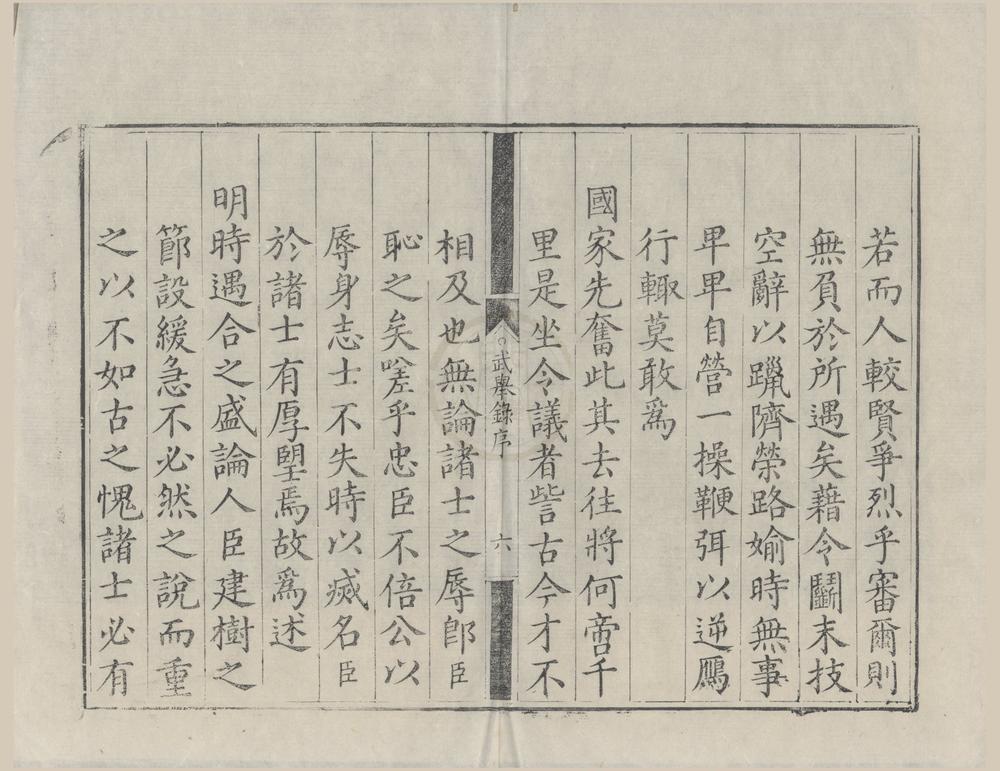 若而人較賢爭烈乎審爾則
無負於所遇矣藉令鬭末技
空辭以躐隮榮路媮時無事
早早自營一操鞭弭以逆鴈
行輙莫敢爲
國家先奮此其去徃將何啻千
里是坐令議者訾古今才不
武舉錄序
六
相及也無論諸士之辱卽臣
恥之矣嗟乎忠臣不倍公以
辱身志士不失時以烕名臣
於諸士有厚望焉故爲述
明時遇合之盛論人臣建樹之
節設緩急不必然之說而重
之以不如古之愧諸士必有